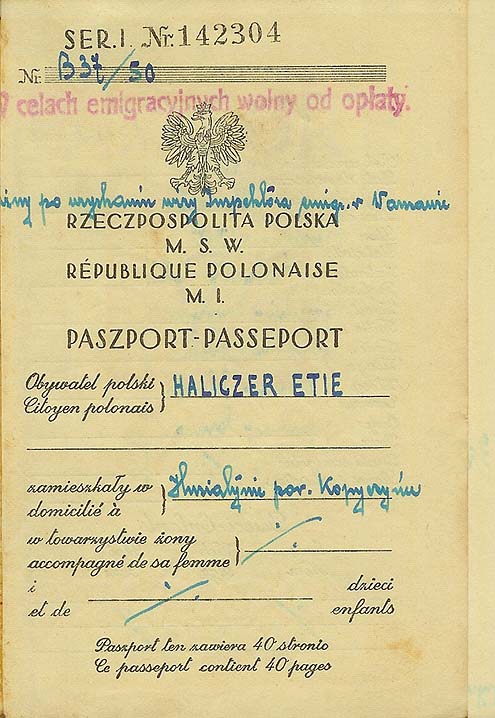 SER. I. Nr. 142304
Nr. B37/30
W celach emigracyjnych wolny od opłaty.
po uzyskaniu wizy Inspektora emigr. w Warszawie
RZECZPOSPOLITA POLSKA
M. S. W.
RÉPUBLIQUE POLONAISE
M. I.
PASZPORT-PASSEPORT
Obywatel polski } HALICZER ETIE
Citoyen polonais
zamieszkały w } Husiatynie pow. Kopyczyńce
domicilié à
w towarzystwie żony }
accompagné de sa femme
i dzieci
et de enfants
Paszport ten zawiera 40 stronic
Ce passeport contient 40 pages